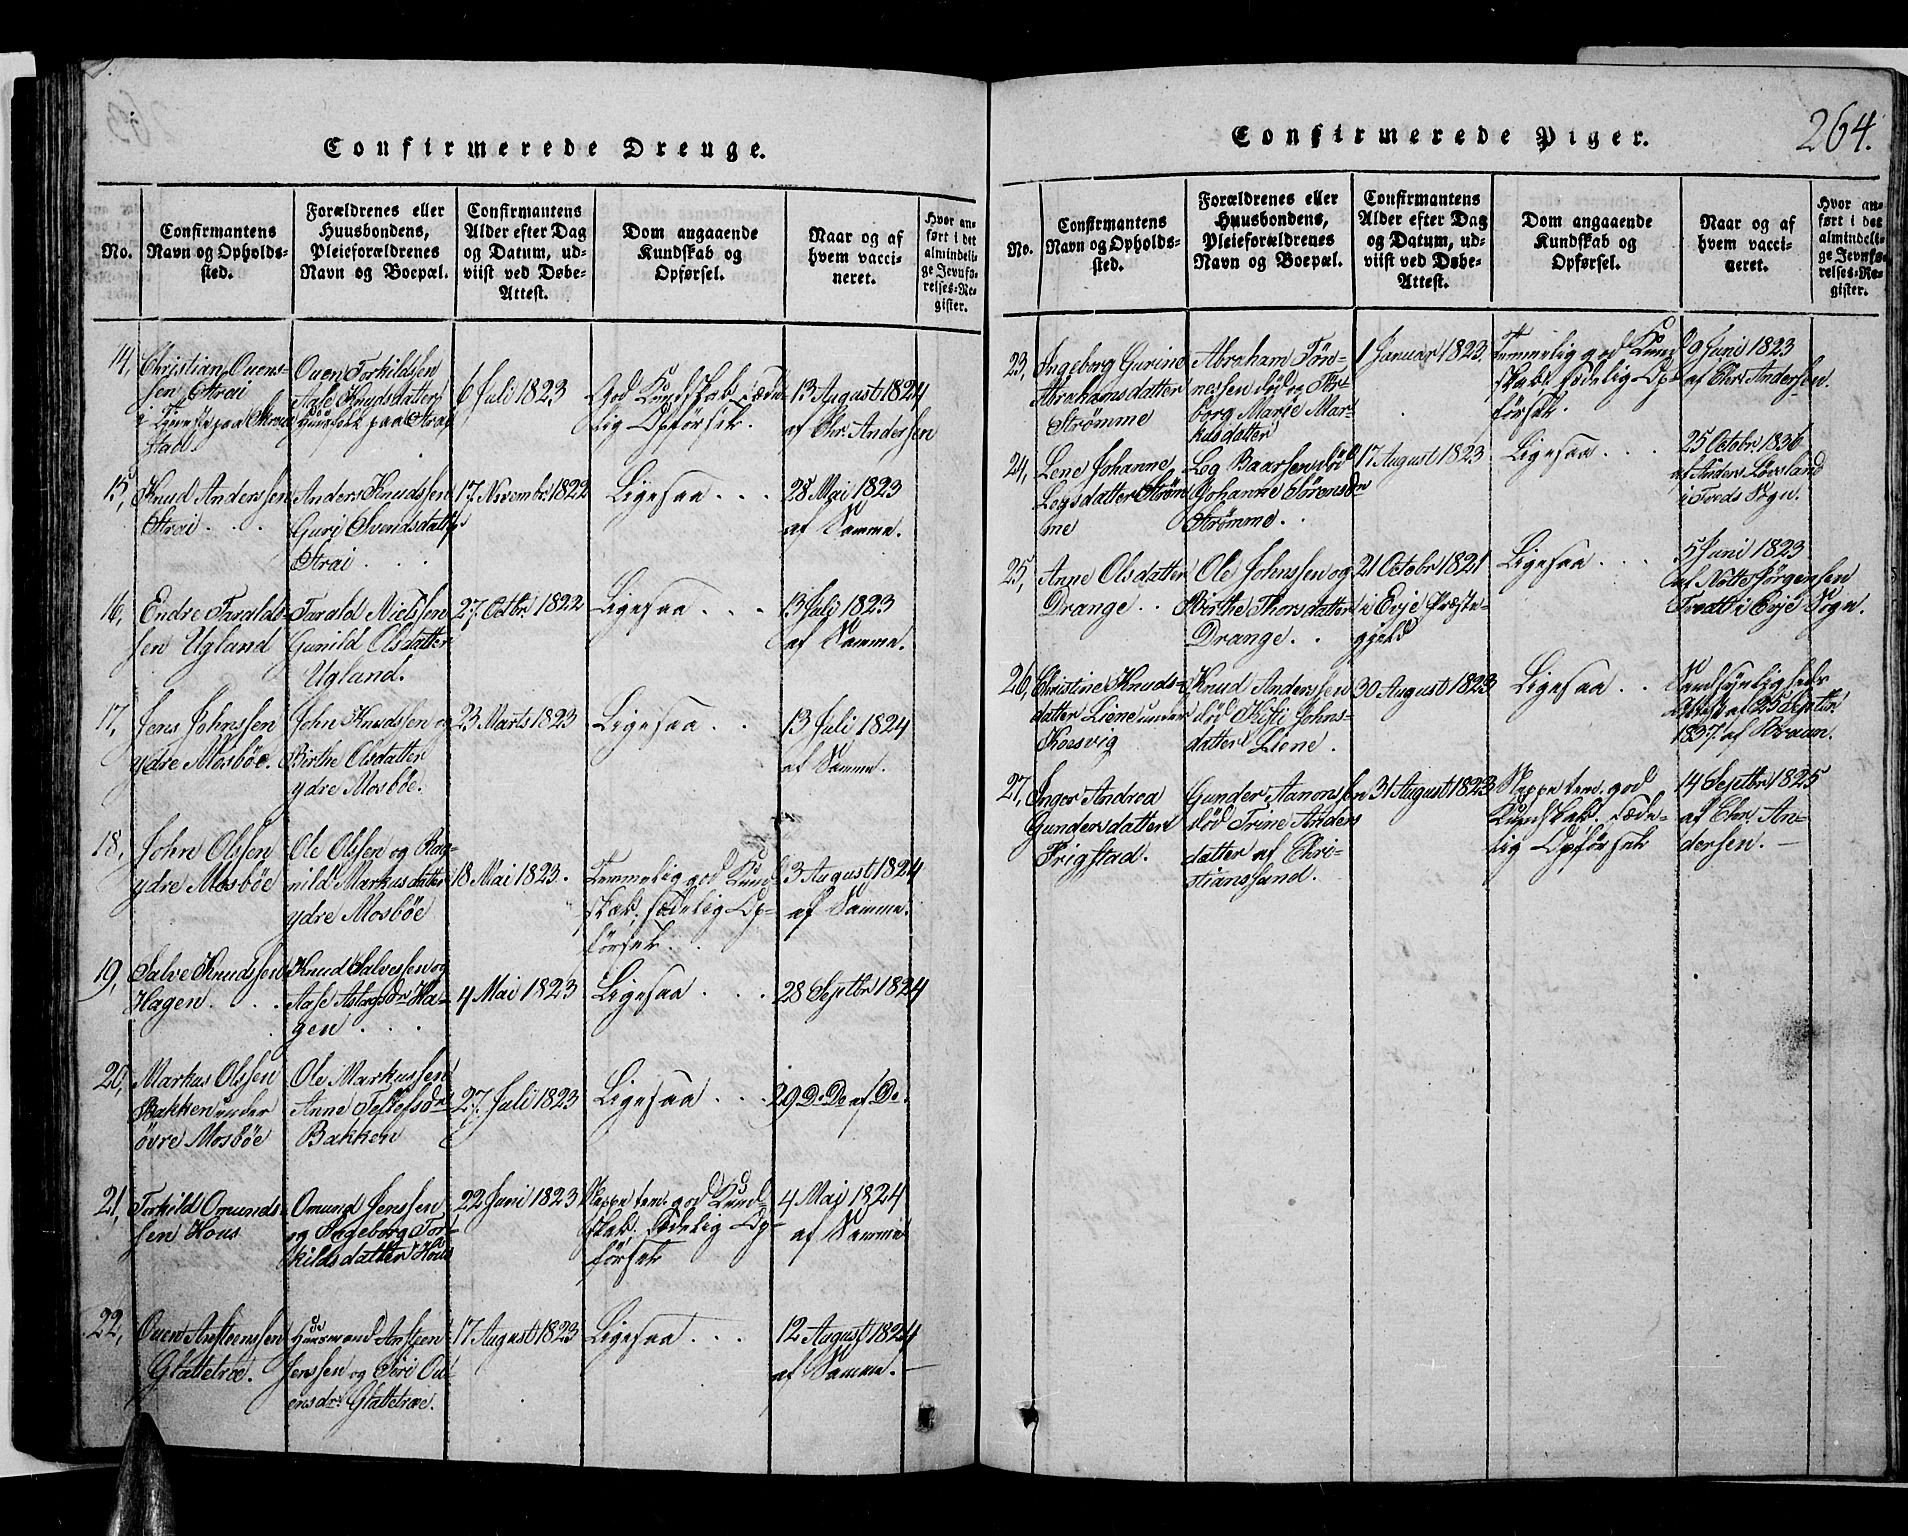 Confirmerede Drenge.
No.
Confirmantens
Navn og Opholds-
sted.
Forældrenes eller
Huusbondens,
Pleieforældrenes
Navn og Boepæl.
Confirmantens
Alder efter Dag
og Datum, ud-
viist ved Døbe-
Attest.
Dom angaaende
Kundskab og
Opførsel.
Naar og af
hvem vacci-
neret.
Hvor an-
ført i det
almindeli-
ge Jevnfø-
relses-Re-
gister.
14, Christian Ouens-
sen Strai
i Tjeneste paa
stad.
Ouen Torkildsen
Aase Knudsdatter
Huusfolk paa Strai
6 Juli 1823
God Kundskab, sæde-
lig Opførsel.
13 August 1824
af Chr. Andersen
15, Knud Anderssen
Strai . . .
Anders Knudssen
Guri Svendsdatter
Strai . . .
17 Novembr 1822
Ligesaa . . .
28 Mai 1823
af Samme.
16, Endre Taralds-
sen Ugland
Tarald Nielssen
Gunild Olsdatter
Ugland.
27, Octbr 1822
Ligesaa . . .
13 Juli 1823
af Samme.
17, Jens Johnssen
ydre Mosbøe.
John Knudssen og
Birthe Olsdatter
ydre Mosbøe.
23 Marts 1823
Ligesaa . .
13 Juli 1824
af Samme.
18, John Olssen
ydre Mosbøe
Ole Olssen og Rag-
nild Markusdatter
ydre Mosbøe
18 Mai 1823.
Temmelig god Kund-
skab, sædelig Op-
førsel. .
3 August 1824
af Samme.
19, Salve Knudssen
Hagen. . . .
Knud Salvessen og
Aase Aslagsdr Ha-
gen . . .
4 Mai 1823
Ligesaa . . .
28 Septbr 1824
20, Markus Olssen
Bakken under
övre Mosbøe
Ole Markussen
Anne Tellefsdr
Bakken
27, Juli 1823
Ligesaa . . .
29 D. Do af Do.
21, Torkild Omunds-
sen Hous
Omund Jenssen
og Ingeborg Tor-
kildsdatter Hous
22 Juni 1823
Neppe tem. god Kund
skab, sædelig Op-
førsel
4 Mai 1824
af Samme
22, Ouen Anstenssen
Glattetræ.
Huusmand Ansteen
Jenssen og Siri Ou-
ensdr. Glattetræe.
17 August 1823
Ligesaa . . .
12 August 1824
af Samme. —
Confirmerede Piger.
264.
No.
Confirmantens
Navn og Opholds-
sted.
Forældrenes eller
Huusbondens,
Pleieforældrenes
Navn og Boepæl.
Confirmantens
Alder efter Dag
og Datum, ud-
viist ved Døbe-
Attest.
Dom angaaende
Kundskab og
Opførsel.
Naar og af
hvem vacci-
neret.
Hvor an-
ført i det
almindeli-
ge Jevnfø-
relses-Re-
gister.
23, Ingeborg Gurine
Abrahamsdatter
Strømme
Abraham Tøn-
nessen død og Thr-
borg Marie Mar-
kusdatter
1 Januar 1823.
Temmelig god Kund
skab, sædelig Op-
førsel.
9 Juni 1823
af Chr. Andersen.
24, Lene Johanne
Logsdatter Strøm
me
Log Baarsen død
Johanne Sörensdr
Strømme. .
17 August 1823
Ligesaa . . .
25 Octobr. 1836
af Anders Løvsland
i Tveds Sogn.
25, Anne Olsdatter
Drange . .
Ole Johnssen og
Birthe Thorsdatter
Drange. .
21 Octobr 1821
i Evje Præste-
gjeld
Ligesaa . . .
5 Juni 1823
af Notte Jørgensen
Tveitt i Evje Sogn.
26, Christine Knuds-
datter Liene under
Kosvig
Knud Anderssen
død Kisti Johns-
datter Liene.
30 August 1823
Ligesaa . .
af 25 Septbr
1837 af Braun.
27, Inger Andrea
Gundersdatter
Frigstad.
Gunder Aanonsen
død Trine Anders
datter af Chri-
stianssand.
31 August 1823
Neppe tem. god
Kundskab. sæde-
lig Opførsel
14 Septbr 1825
af Chr. An-
dersen. —